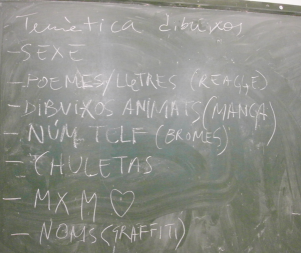 Temàtica dibuixos
- SEXE
- POEMES/LLETRES (REAGGE)
- DIBUIXOS ANIMATS (MANGA)
- NÚM TELF (BROMES)
- CHULETAS
- M X M ♡
- NOMS (GRAFFITI)